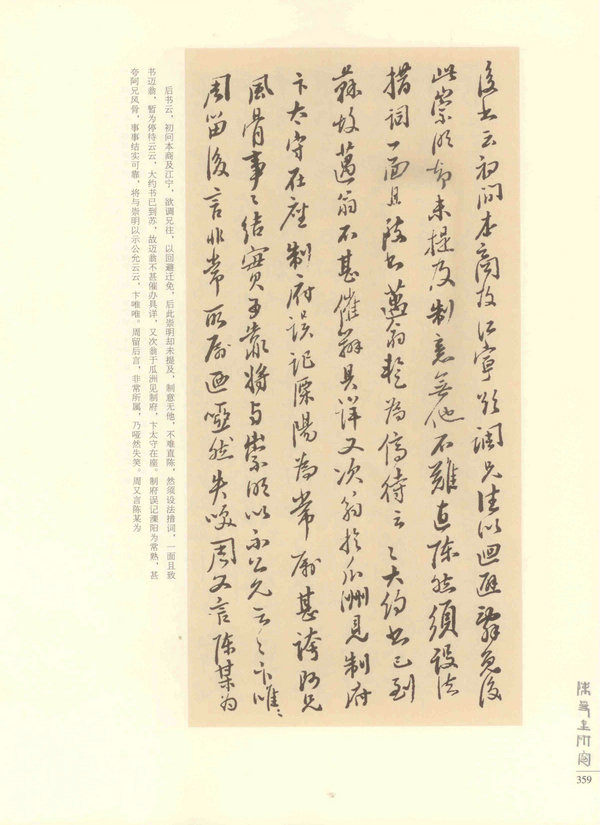 後书云初间本商及江宁欲调兄往以迴避辞免後
此崇明却未提及制意無他不难直陈然須设法
措词一面且致书邁翁暂為停待云〻大约书已到
蘇故邁翁不甚催辦具详又次翁於瓜洲見制府
卞太守在座制府误记溧陽為常屬甚誇阿兄
風骨事〻结實可靠将与崇明以示公允云〻卞唯〻
周留後言非常所屬迺啞然失笑周又言陈某为
后书云，初问本商及江宁，欲调兄往，以回避迁免，后此崇明却未提及，制意无他，不难直陈，然须设法措词，一面且致
书迈翁，暂为停待云云，大约书已到苏，故迈翁不甚催办具详，又次翁于瓜洲见制府，卞太守在座。制府误记溧阳为常熟，甚
夸阿兄风骨，事事结实可靠，将与崇明以示公允云云，卞唯唯。周留后言，非常所属，乃哑然失笑。周又言陈某为
陳曼生研究
359